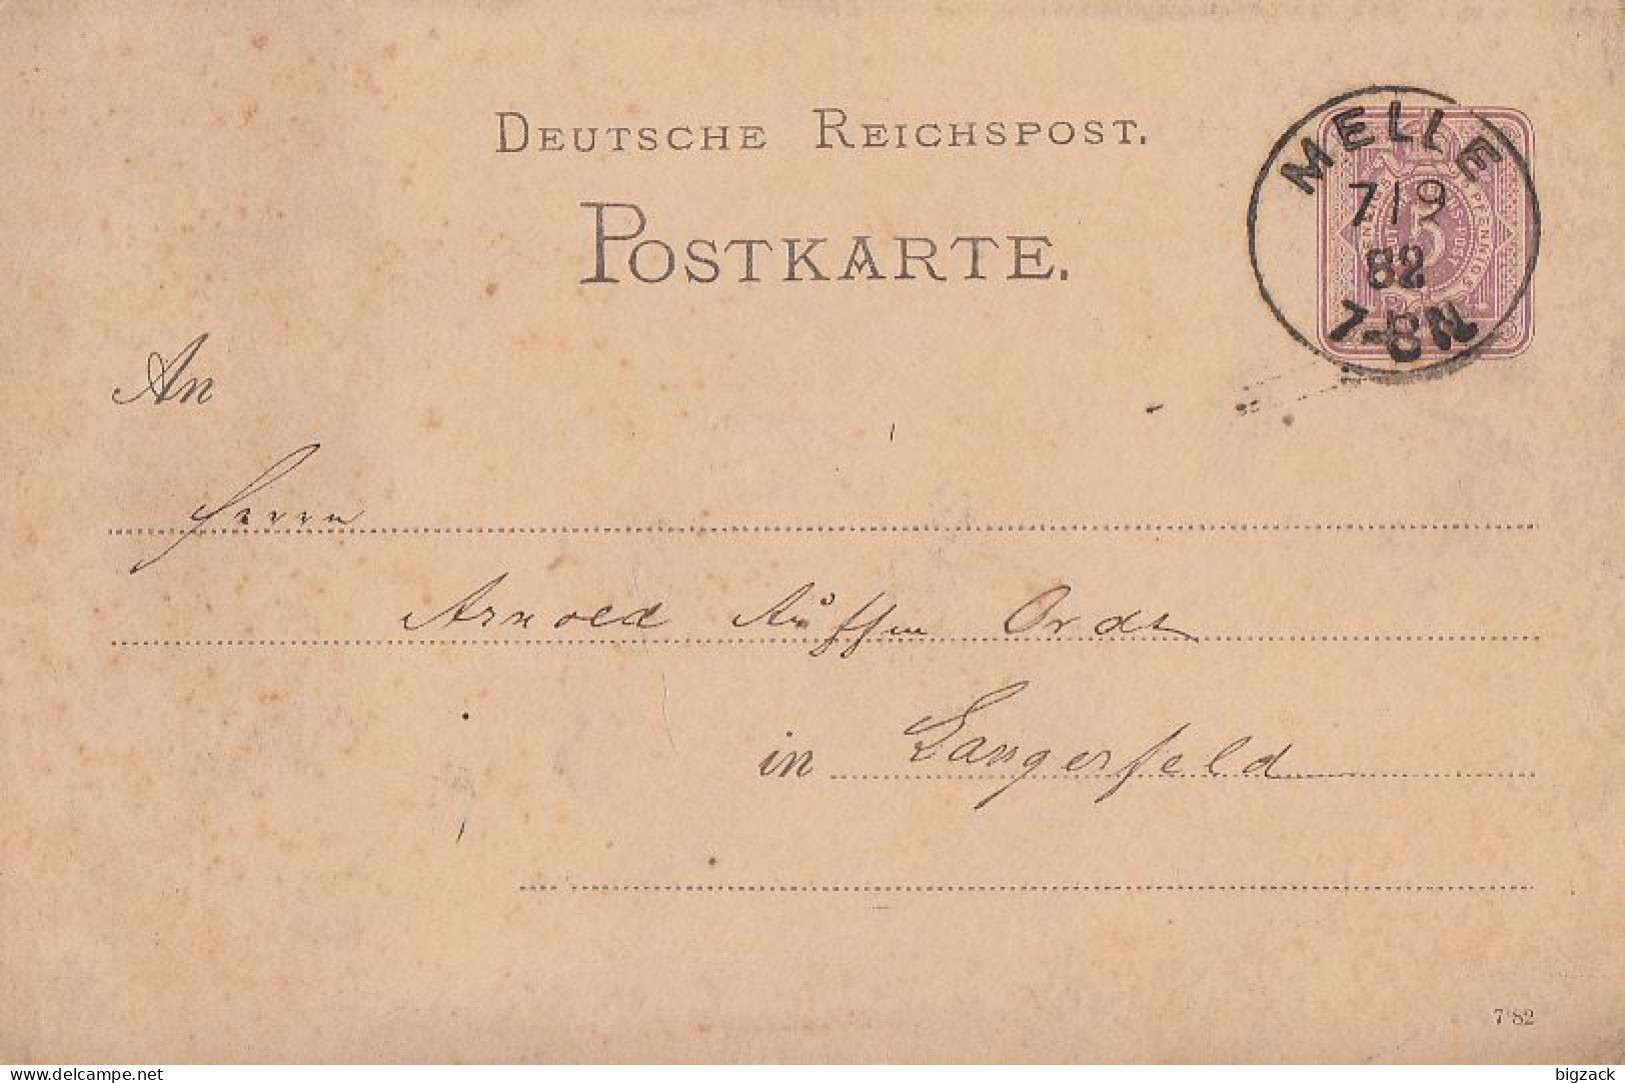 DEUTSCHE REICHSPOST.
POSTKARTE.
MELLE
7/9
82
7-8N
5
An
Herrn
Arnold
in Langerfeld
7 82
delcampe.net
bigzack